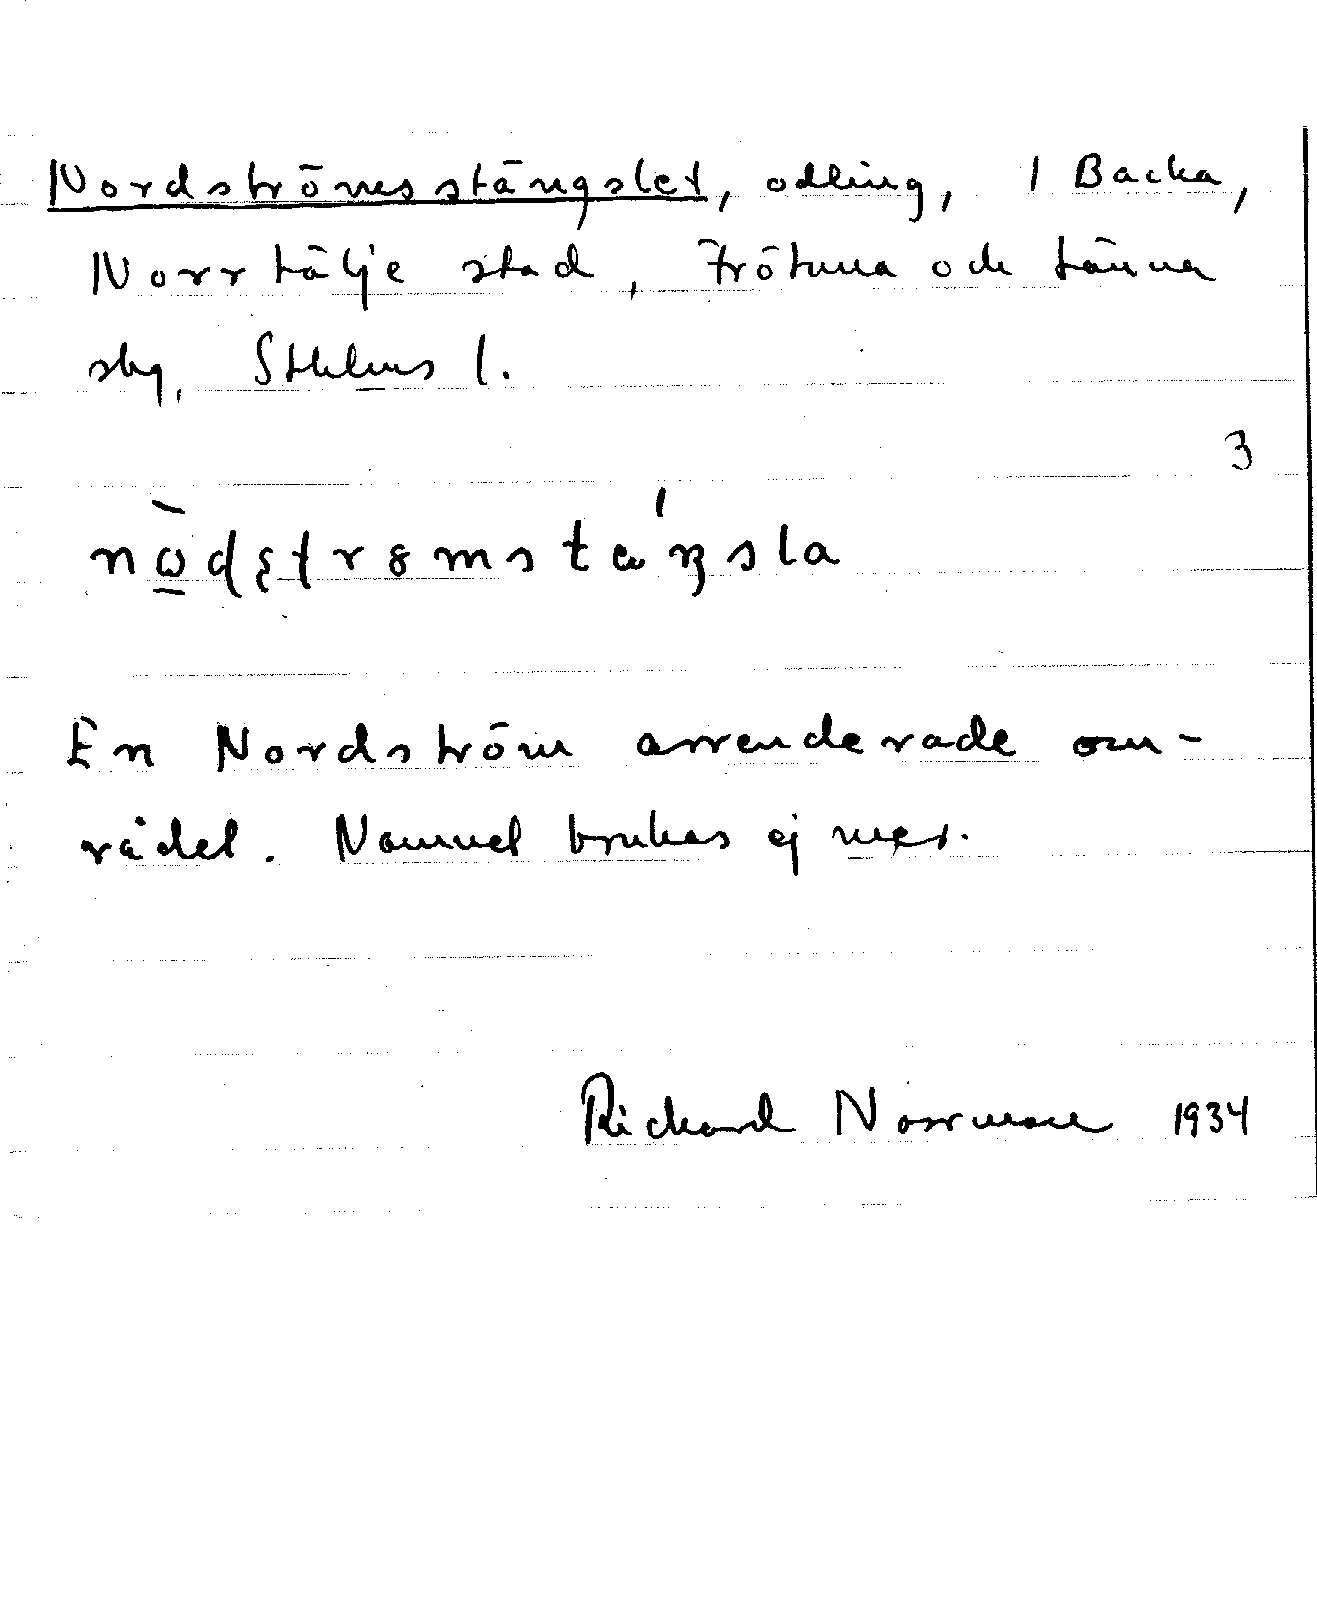 Nordströmsstängslet, odling, 1 Backa,
Norrtälje stad, Frötuna och Länna
sbg, Sthlms l.
3
nὼ̲dʂtrömstäŋsla
En Nordström arrenderade om-
rådet. Namnet brukas ej mer.
Richard Norrman 1934